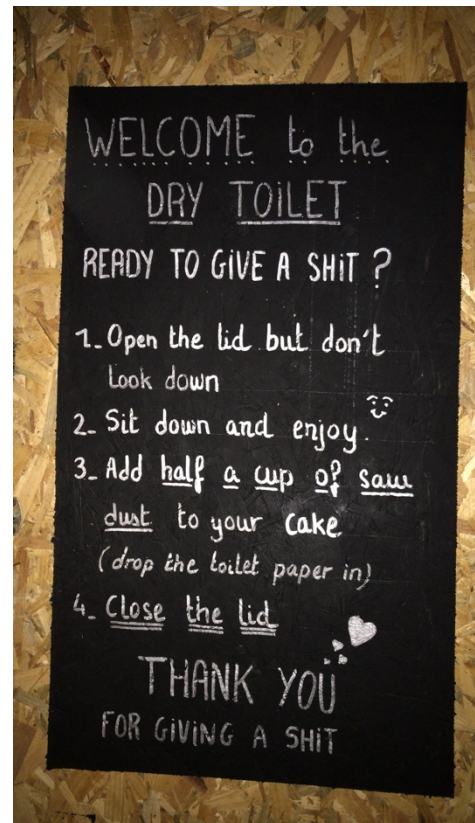 WELCOME to the
DRY TOiLET
READY TO GiVE A SHiT ?
1_ Open the lid but don't
look down
2_ Sit down and enjoy.
3_ Add half a cup of saw
dust to your cake
(drop the toilet paper in)
4_ Close the lid
THANK YOU
FOR GiViNG A SHiT